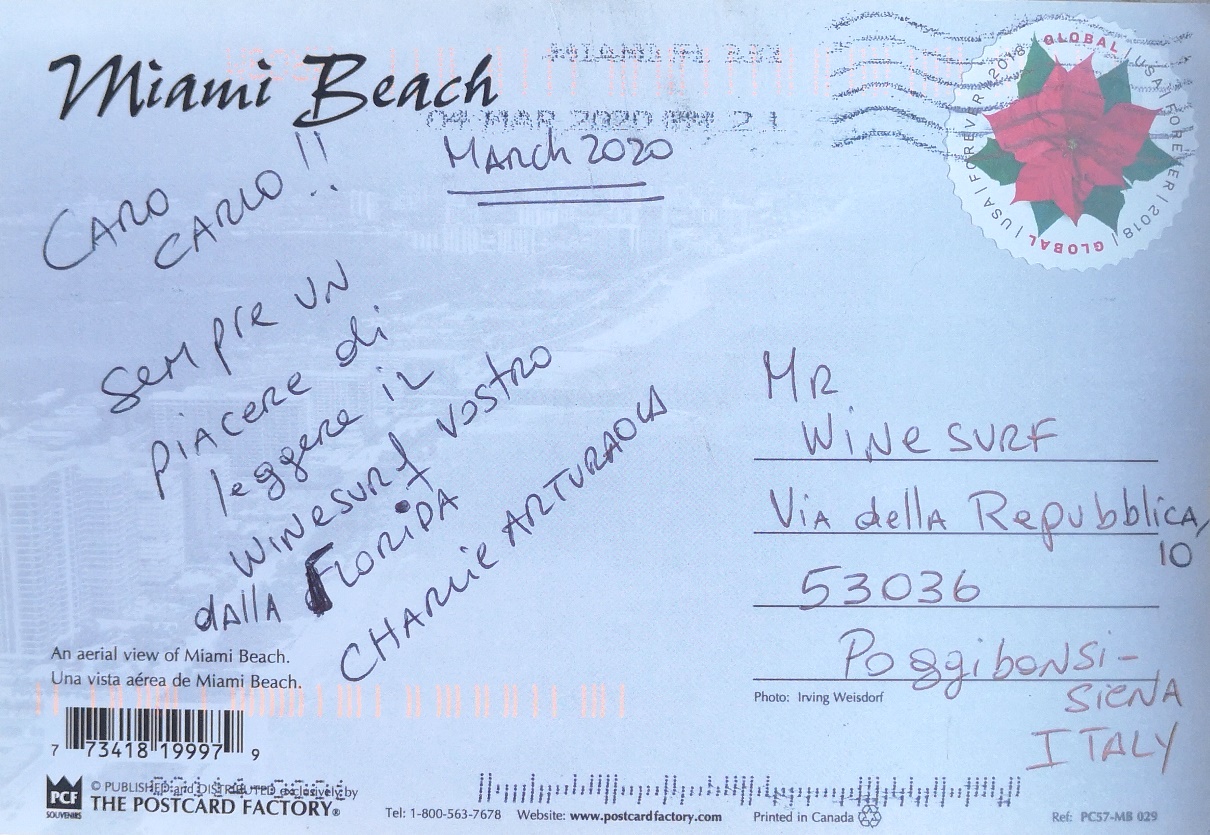 Miami Beach
04 MAR 2020 PM 2 L
March 2020
CARO
CARLO!!
Sempre un
piacere di
leggere il
winesurf vostro
dalla Florida
CHARLIE ARTURAOLA
GLOBAL | USA | FOREVER | 2018 | GLOBAL | USA | FOREVER | 2018
MR
Wine SURF
Via della Repubblica,
10
53036
Poggibonsi-
Siena
ITALY
An aerial view of Miami Beach.
Una vista aérea de Miami Beach.
Photo: Irving Weisdorf
7 73418 19997 9
PCF
SOUVENIRS
© PUBLISHED and DISTRIBUTED exclusively by
THE POSTCARD FACTORY®
Tel: 1-800-563-7678 Website: www.postcardfactory.com
Printed in Canada
Ref: PC57-MB 029